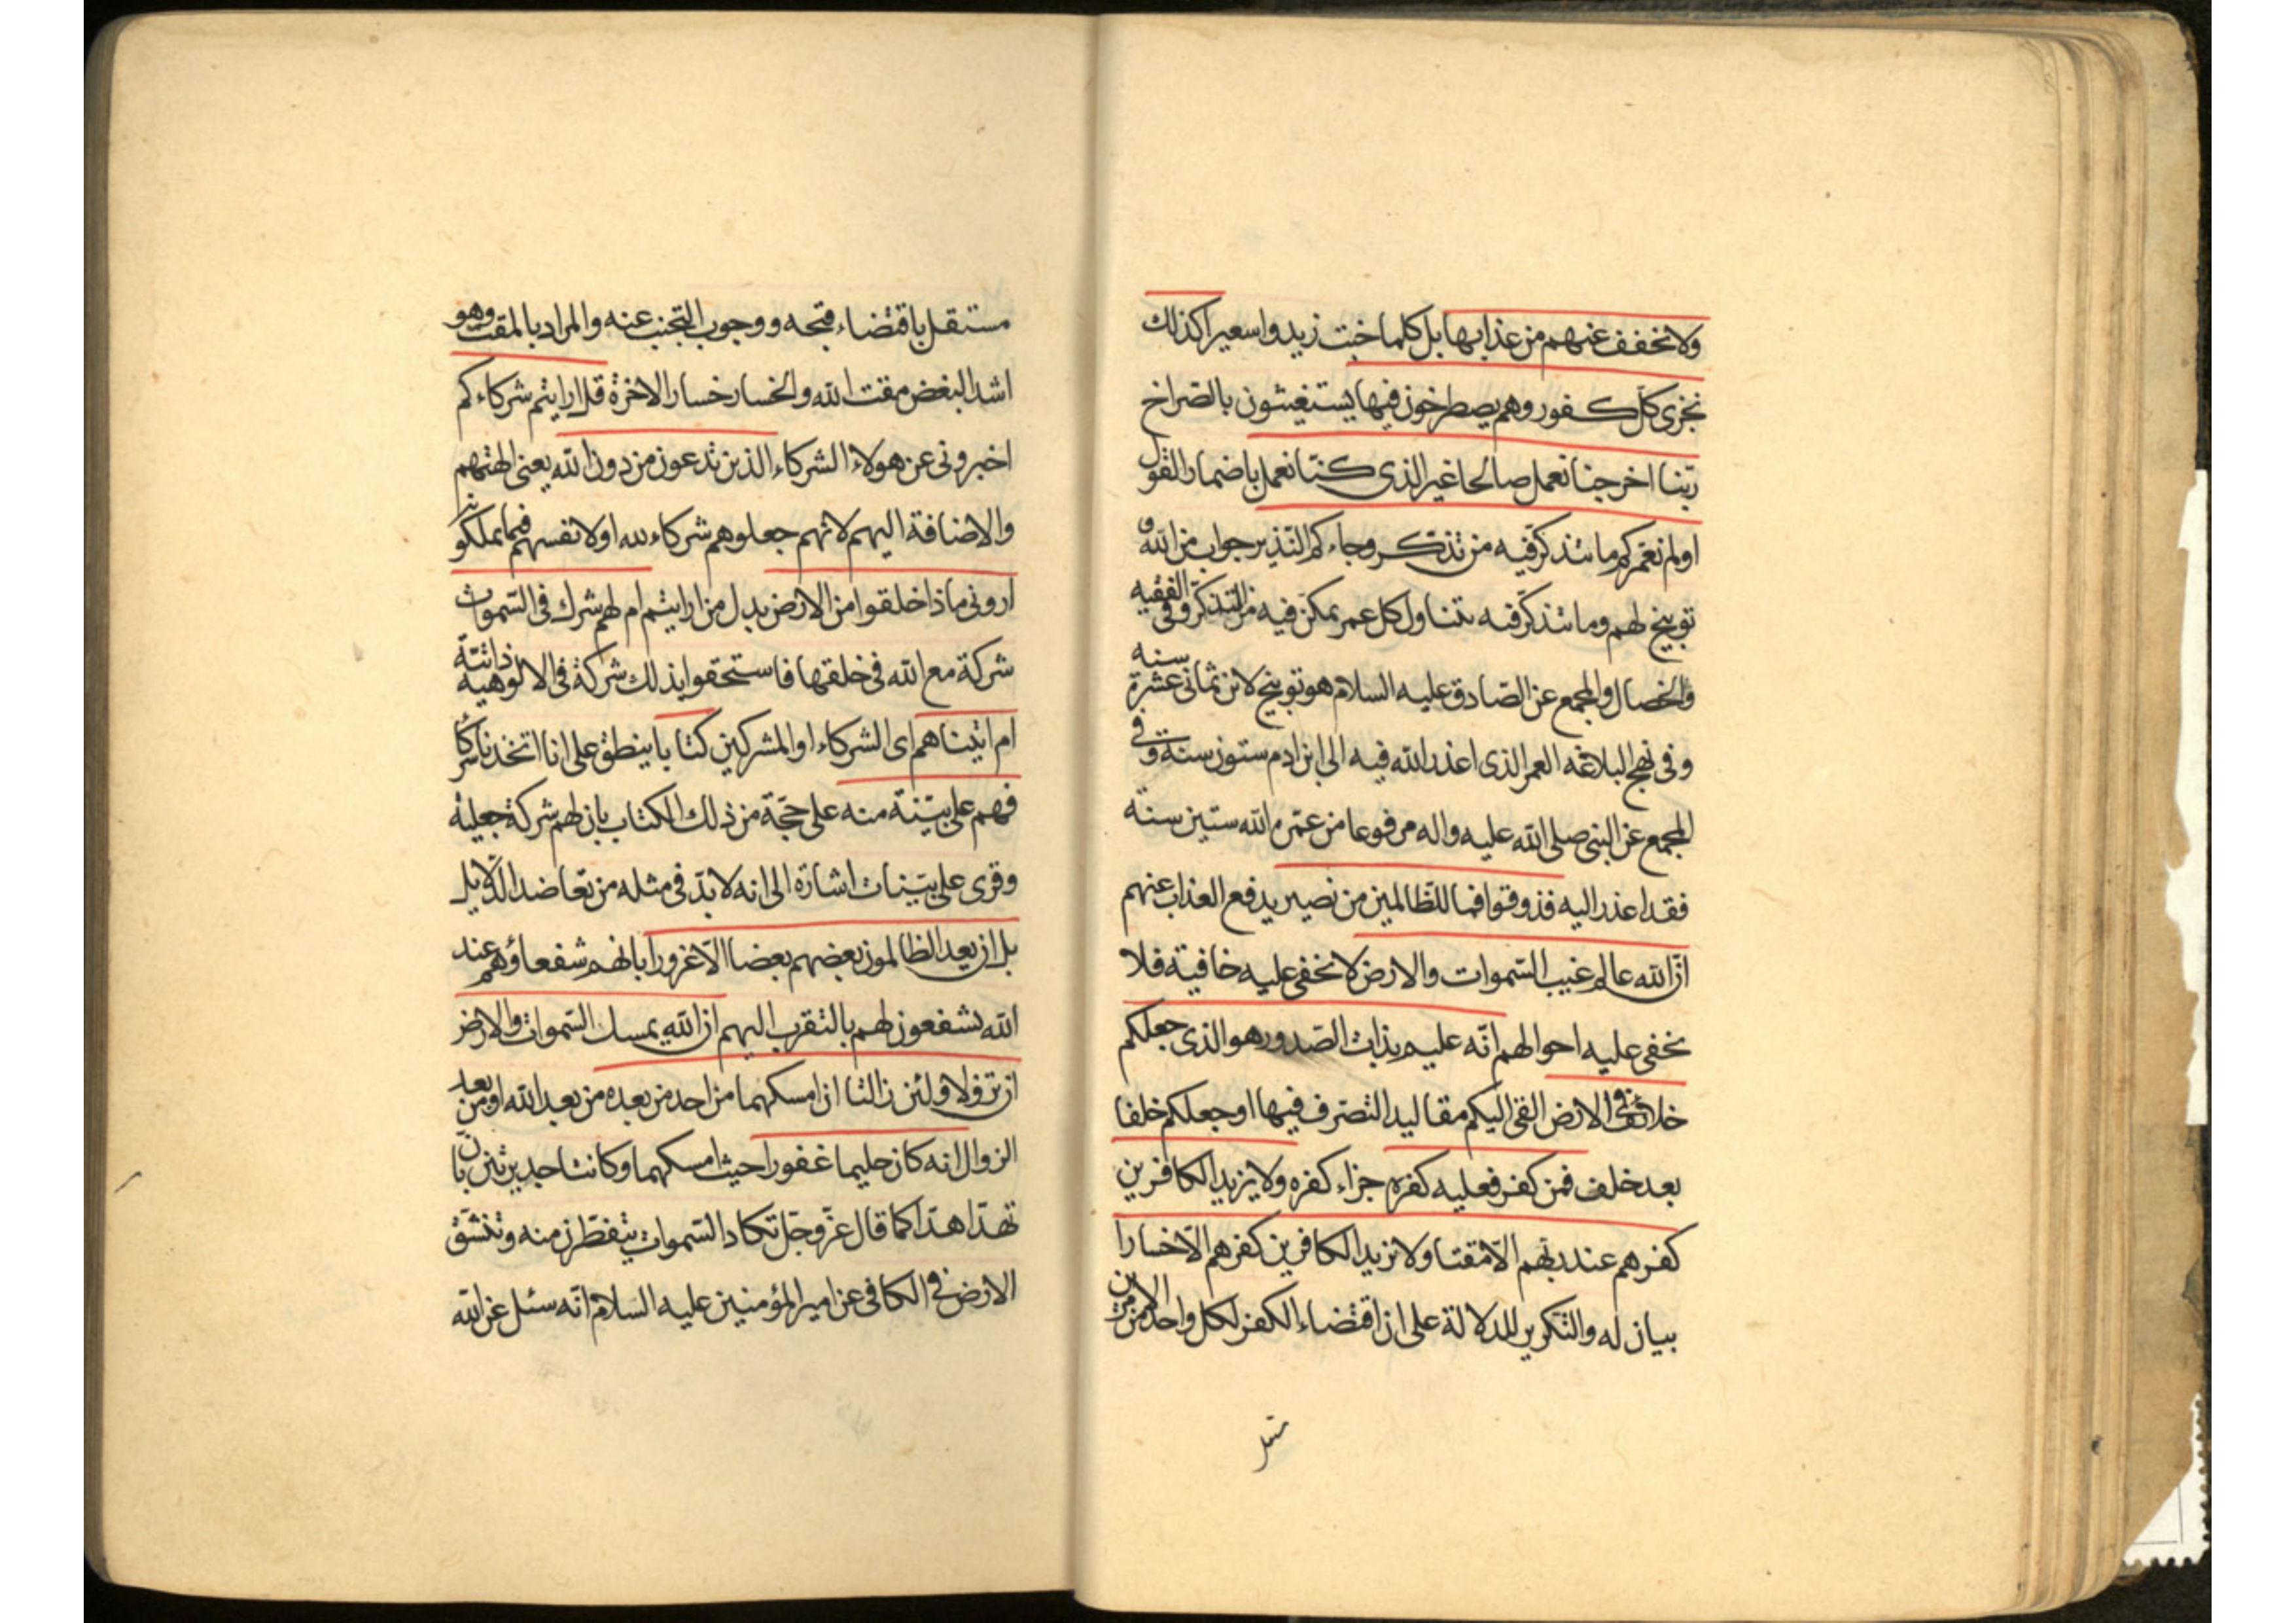 ولا نخفف عنهم من عذابها بل كلما خبت زيدوا سعيرا كذلك
نجزى كل كفور وهم يصطرخون فيها يستغيثون بالصراخ
ربّنا اخرجنا نعمل صالحا غير الذى كنّا نعمل باضمار القول
اولم نعمّركم ما يتذكّر فيه من تذكّر وجاءكم النّذير جواب من الله و
توبيخ لهم وما يتذكّر فيه يتناول كل عمر يمكّن فيه من التذكّر وفى الفقيه
والخصال والمجمع عن الصّادق عليه السلام هو توبيخ لابن ثمانى عشرة سنه
وفى نهج البلاغه العمر الذى اعذر الله فيه الى ابن ادم ستون سنة وفى
المجمع عن النبى صلى الله عليه واله مرفوعا من عمّره الله ستين سنة
فقد اعذر اليه فذوقوا فما للظّالمين من نصير يدفع العذاب عنهم
انّ الله عالم غيب السّموات والارض لا نخفى عليه خافية فلا
نخفى عليه احوالهم انّه عليم بذات الصّدور هو الذى جعلكم
خلائف فى الارض القى اليكم مقاليد التصرّف فيها او جعلكم خلفا
بعد خلف فمن كفر فعليه كفره جزاء كفره ولا يزيد الكافرين
كفرهم عند ربّهم الّا مقتا ولا نزيد الكافرين كفرهم الّا خسارا
بيان له والتكرير للدلالة على ان اقتضاء الكفر لكل واحد من الامرين
مستقل
مستقل باقتضاء قبحه ووجوب التجنب عنه والمراد بالمقت وهو
اشد البغض مقت الله والخسار خسار الاخرة قل ارايتم شركاءكم
اخبرونى عن هولاء الشركاء الذين تدعون من دون الله يعنى الهتهم
والاضافة اليهم لانهم جعلوهم شركاء لله او لانفسهم فيما يملكونه
ارونى ماذا خلقوا من الارض بدل من ارايتم ام لهم شرك فى السّموات
شركة مع الله فى خلقها فاستحقوا بذلك شركة فى الالوهية ذاتيّة
ام اتيناهم اى الشركاء او المشركين كتابا ينطق على انا اتخذنا شركاء
فهم على بيّنة منه على حجّة من ذلك الكتاب بان لهم شركة جعلية
وقرى على بيّنات اشارة الى انه لا بدّ فى مثله من تعاضد الدلايل
بل ان يعد الظالمون بعضهم بعضا الّا غرورا بانهم شفعاؤهم عند
الله يشفعون لهم بالتقرب اليهم ان الله يمسك السّموات والارض
ان تزولا ولئن زالتا ان امسكهما من احد من بعده من بعد الله او من بعد
الزوال انه كان حليما غفورا حيث امسكهما وكانتا جديرتين بان
تهدّا هدّا كما قال عزّ وجّل تكاد السّموات يتفطّرن منه وتنشقّ
الارض فى الكافى عن امير المؤمنين عليه السلام انّه سئل عن الله